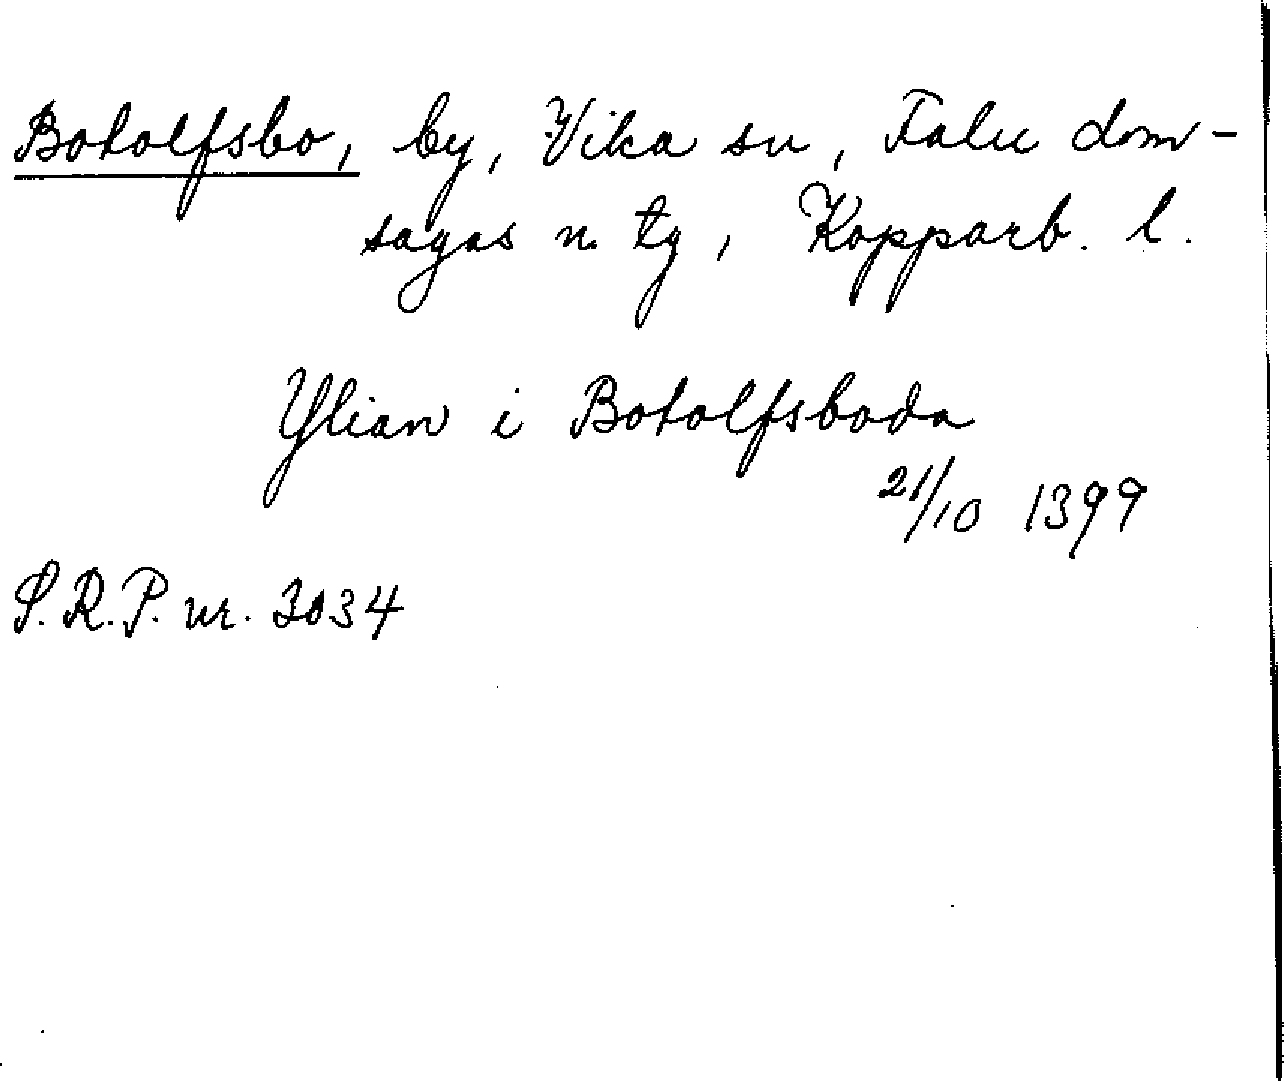 Botolfsbo, by, Vika sn, Falu dom-
sagas n. tg, Kopparb. l.
Ylian i Botolfsboda
21/10 1399
S.R.P. nr. 3034